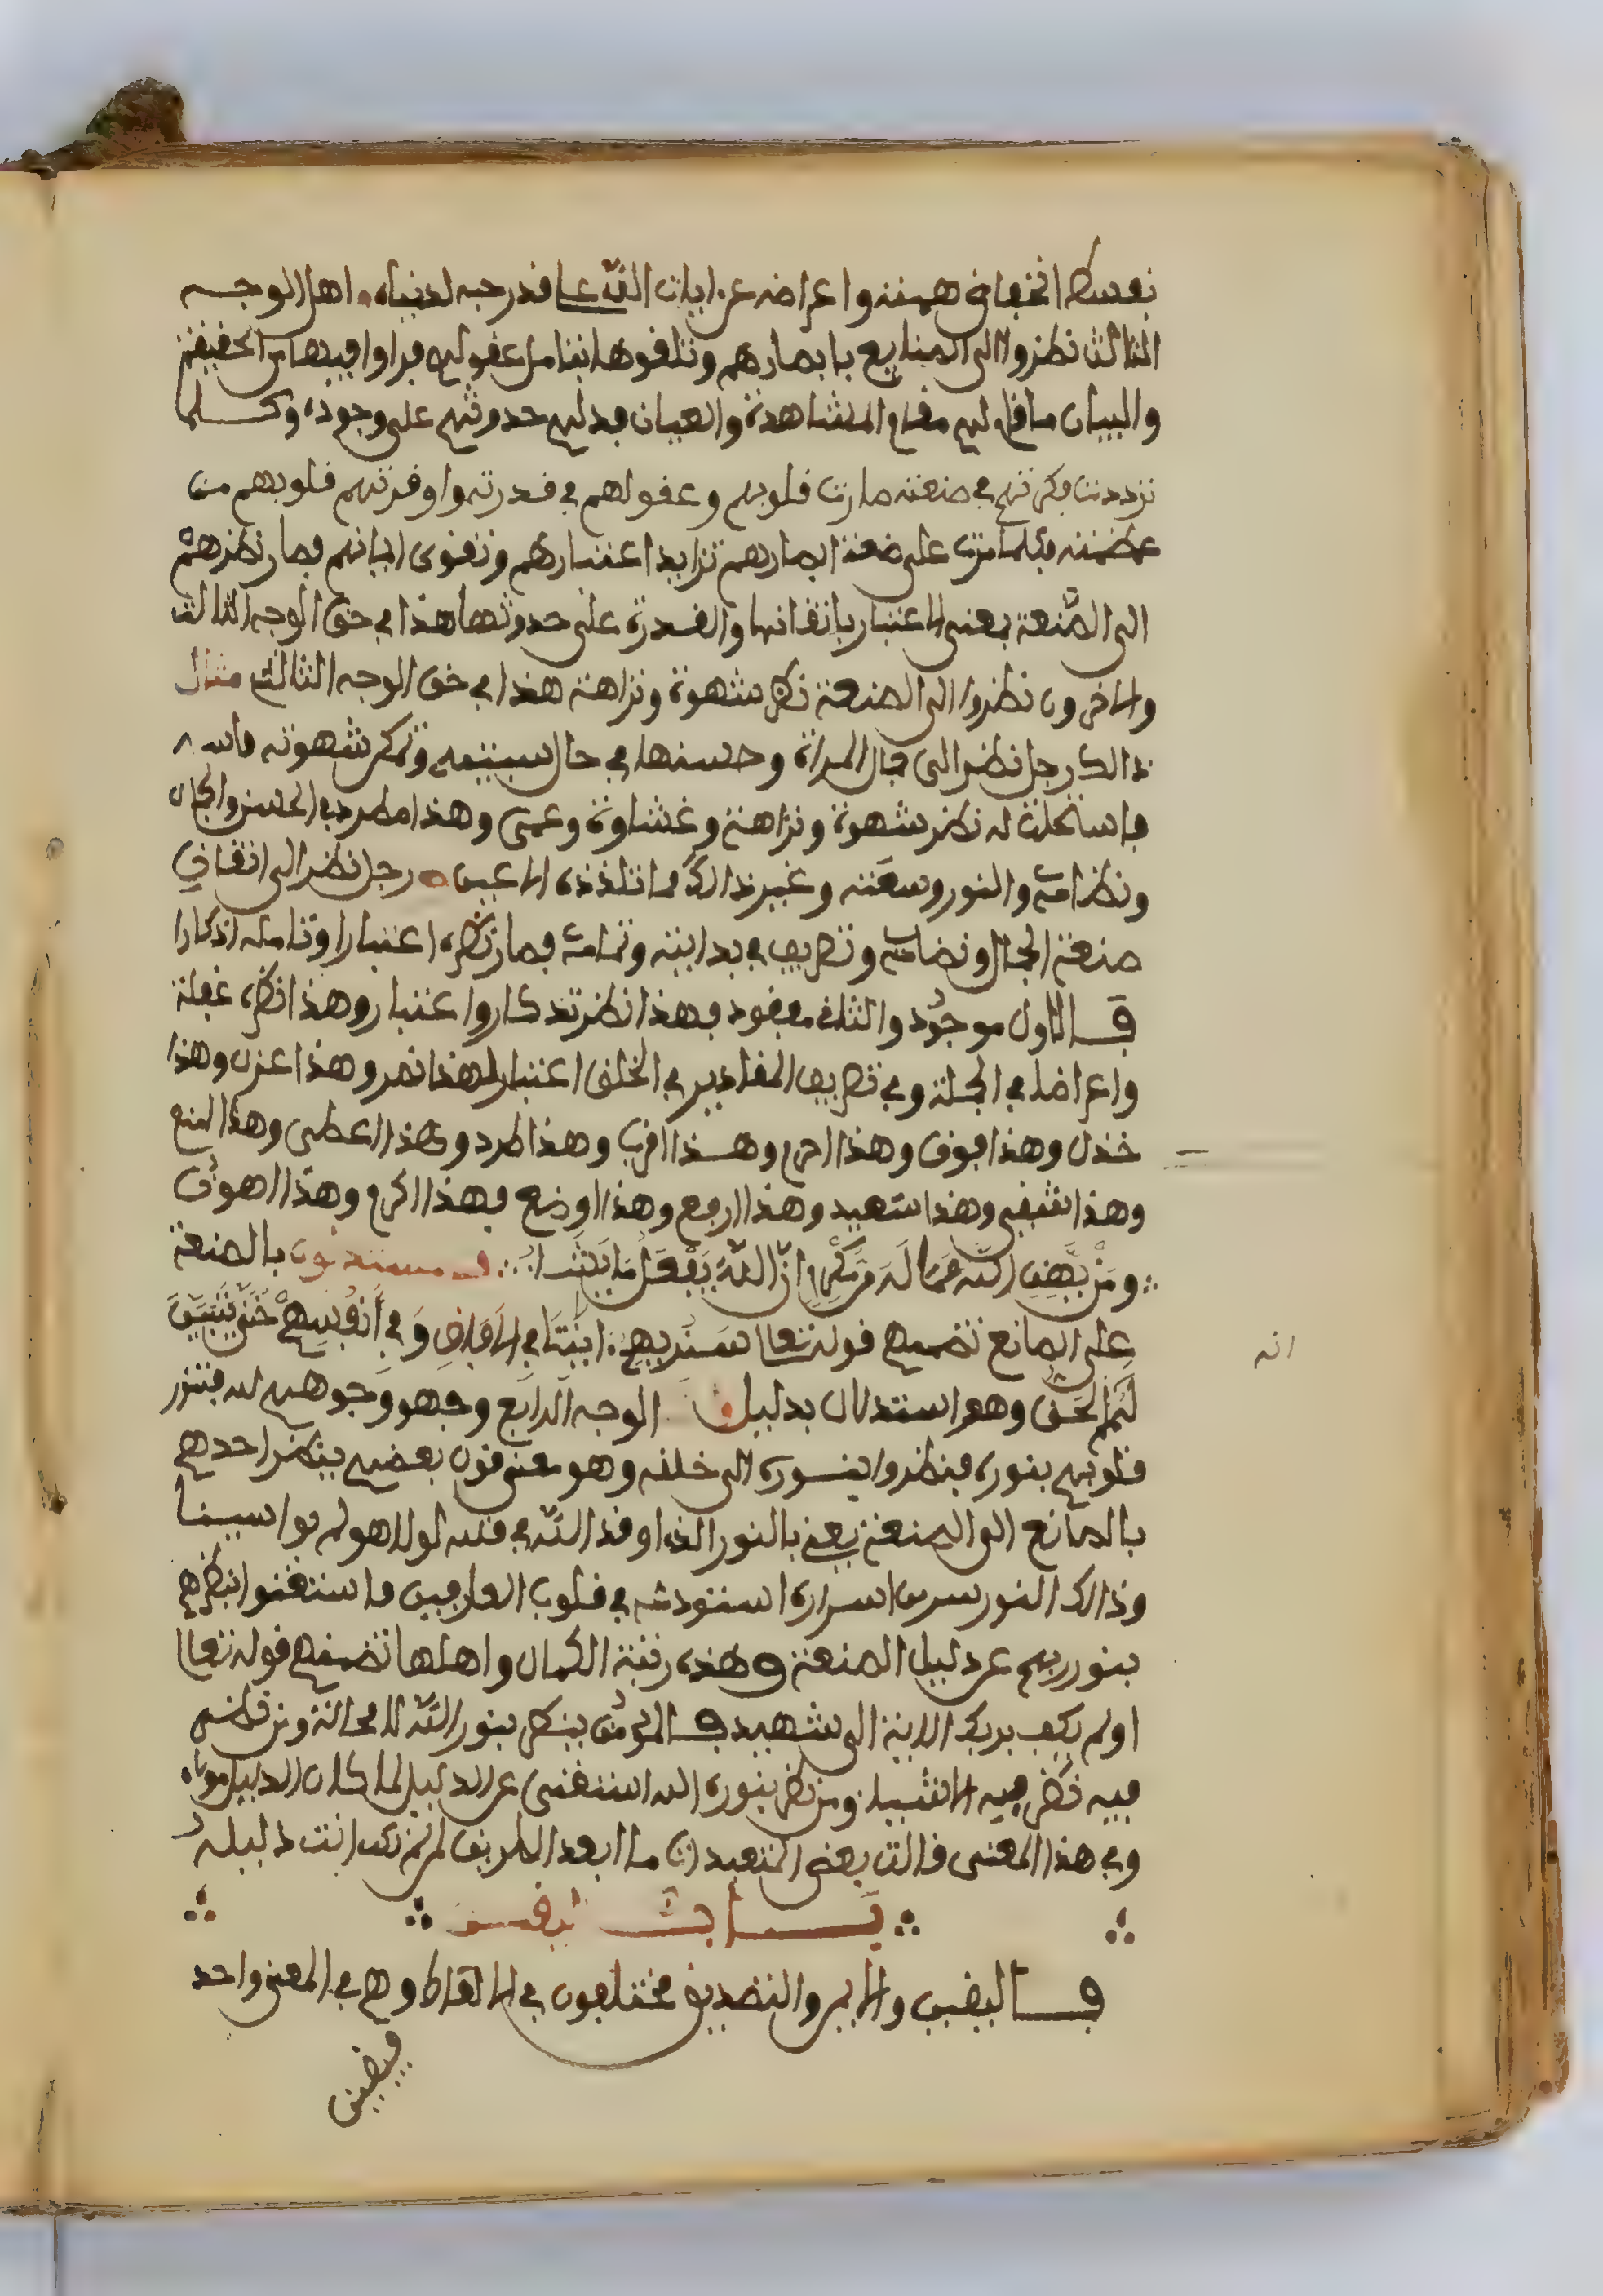 بقسط انخفاض همته واعراضه عن ايات الله على قدر حبه لدنياه اهل الوجه
الثالث نظروا الى الصنايع بابصارهم وتلقوها بتامل عقولهم فراوا فيها من الحقيقة
والبيان ما قام لهم مقام المشاهدة والعيان فدلهم حدوثهم على وجوده وكلما
ترددت فكرتهم في صنعته صارت قلوبهم وعقولهم في قدرته واوقرتهم قلوبهم من
عظمته فكلما مرت على صنعة ابصارهم تزايد اعتبارهم وتقوى ايمانهم فصار نظرهم
الى الصنعة بمعنى الاعتبار باتقانها والقدرة على حدوثها هذا في حق الوجه الثالث
والاخرون نظروا الى الصنعة نظر شهوة ونزاهة هذا في حق الوجه الثالث مثال
ذالك رجل نظر الى جمال المراة وحسنها في حال وتمكن شهوته
فاستحلت له نظر شهوة ونزاهة وغشاوة وعمى وهذا مطرد في الحسن والجمال
ونظرامة والنور وسعته وغير ذالك مما تلذذه الاعين رجل نظر الى اتقان
صنعة الجمال ونضامه وتصريف في بدايته وتمامه فصار نظره اعتبارا وتامله اذكارا
فالاول موجود والثاني مفقود فهذا نظر تذكار واعتبار وهذا نظر غفلة
واعراض في الجملة وفي تصريف المقادير في الخلق اعتبار لهذا نصر وهذا عزل وهذا
خذل وهذا فوق وهذا احرم وهذا اقرب وهذا طرد وهذا اعطى وهذا منع
وهذا شقي وهذا سعيد وهذا ارفع وهذا اوضع فهذا اكرم وهذا اهون
ومن يهن الله فما له من مكرم ان الله يفعل ما يشا بالصنعة
على الصانع تضمنه قوله تعالى سنريهم اياتنا في الافاق وفي انفسهم حتى يتبين
لهم انه الحق وهو استدلال بدليل الوجه الرابع وجهوا وجوههم لله فنور
قلوبهم بنوره فنظروا بنوره الى خلقه وهو معنى قول بعضهم ينظر احدهم
بالصانع الى الصنعة يعني بالنور الذي اوقد الله في قلبه لولا هو لم يوا سبيفا
وذالك النور سر من اسراره استودعه في قلوب العارفين فاستغنوا بنظرهم
بنور ربهم عن دليل الصنعة وهذه رتبة الكمال واهلها تضمنهم قوله تعالى
اولم يكف بربك الاية الى شهيد فالمومن ينظر بنور الله لا محالة ومن
فيه نظر فيه الاشيا ومن نظر بنوره اليه استغنى عن الدليل لما كان الدليل مولاه
وفي هذا المعنى قالت بعض المتعبدات ما ابعد الطريق لمن لم تكن انت دليله
باب اليقين
فاليقين والايمن والتصديق مختلفون في الالفاظ وهم في المعنى واحد
فيقين